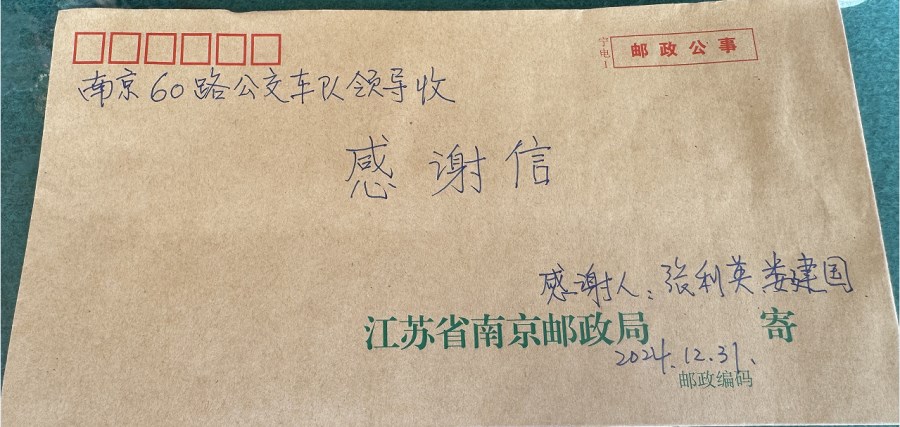 宁电1
邮政公事
南京60路公交车队领导收
感谢信
感谢人：张利英 娄建国
江苏省南京邮政局 寄
2024.12.31.
邮政编码